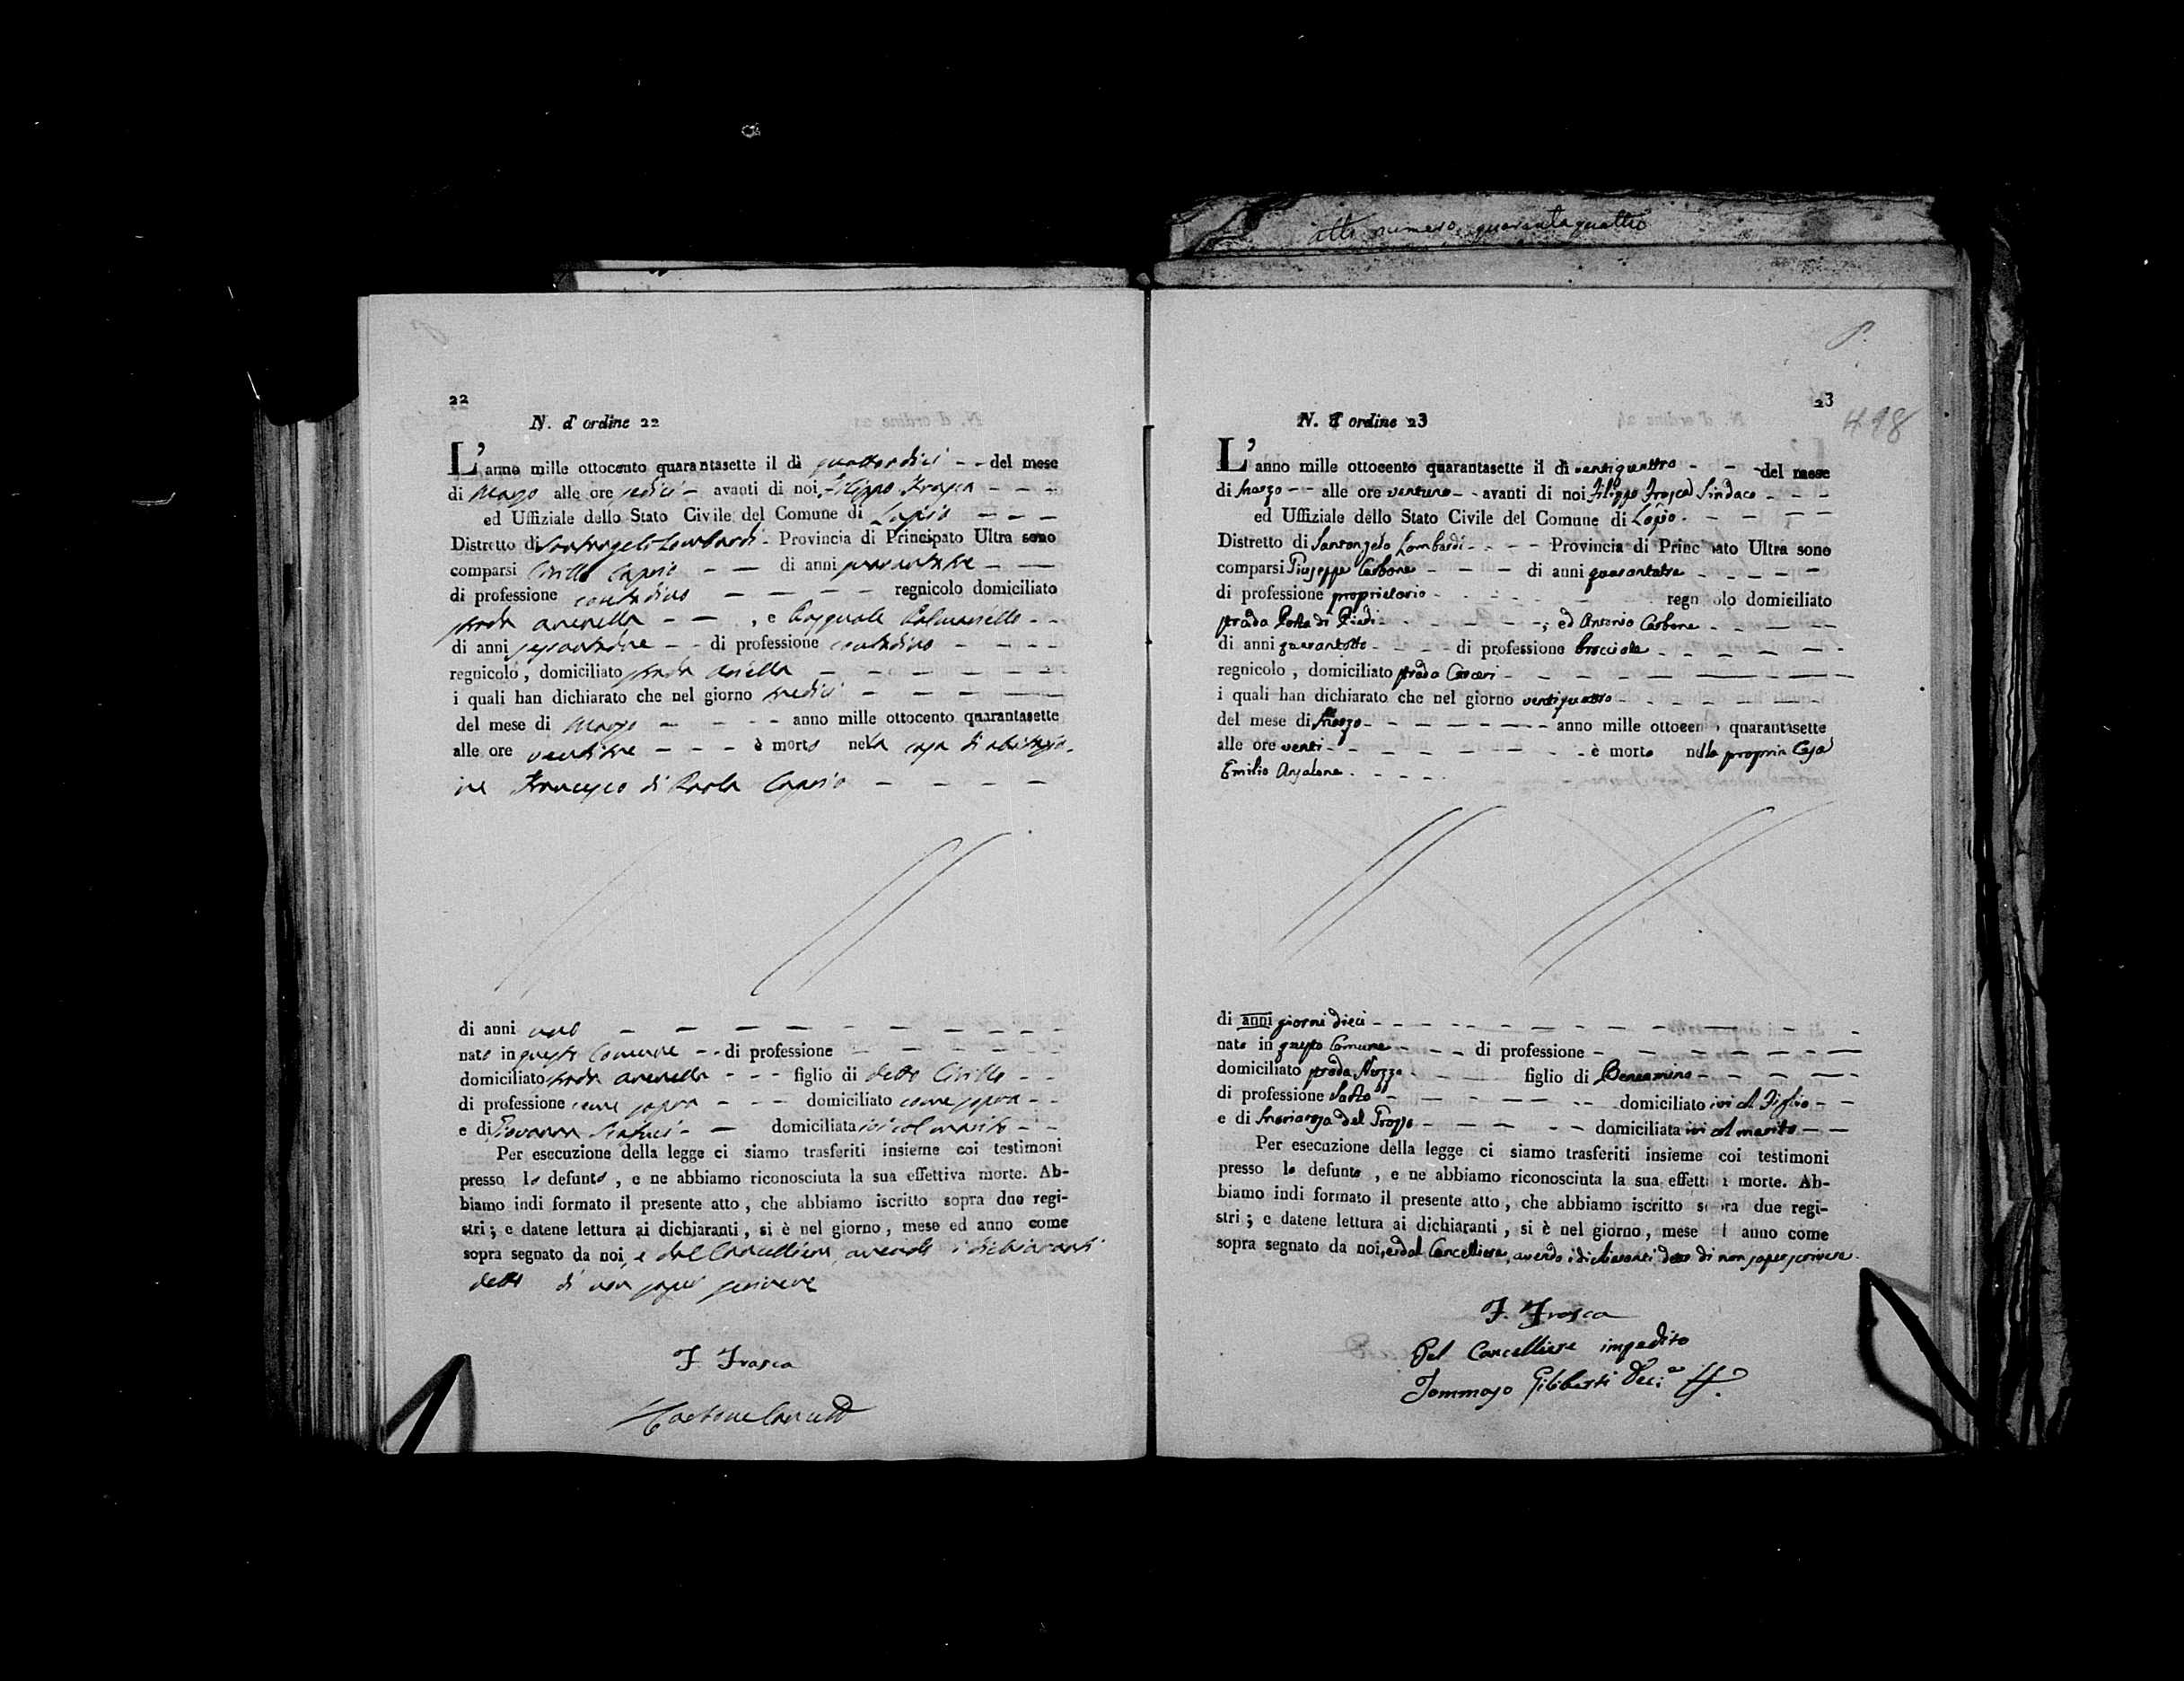 atto numero quarantaquattro
22
N. d' ordine 22
L' anno mille ottocento quarantasette il dì quattordici - - del mese
di Marzo alle ore sedici - avanti di noi Filippo Frasca - - -
ed Uffiziale dello Stato Civile del Comune di Lapio - - -
Distretto di Santangelo Lombardi - Provincia di Principato Ultra sono
comparsi Cirillo Caprio - - di anni quarantatre - -
di professione contadino - - - - regnicolo domiciliato
strada arenella - - , e Pasquale - -
di anni - - di professione contadino - - - -
regnicolo, domiciliato strada - - - - - -
i quali han dichiarato che nel giorno tredici - - - -
del mese di Marzo - - - - anno mille ottocento quarantasette
alle ore ventitre - - - è morto nella casa di abitazio-
ne Francesco di Paola Caprio - - - -
di anni uno - - - - - - - - -
nato in questo Comune - - di professione - - - - -
domiciliato strada arenella - - - figlio di detto Cirillo - -
di professione come sopra - - - domiciliato come sopra - -
e di Giovanna - - domiciliata ivi col marito - -
Per esecuzione della legge ci siamo trasferiti insieme coi testimoni
presso lo defunto, e ne abbiamo riconosciuta la sua effettiva morte. Ab-
biamo indi formato il presente atto, che abbiamo iscritto sopra due regi-
stri; e datene lettura ai dichiaranti, si è nel giorno, mese ed anno come
sopra segnato da noi, e dal Cancelliere, avendo i dichiaranti
detto di non saper scrivere
F. Frasca
Gaetano
23
418
N. d' ordine 23
L' anno mille ottocento quarantasette il dì ventiquattro - - - del mese
di Marzo - - alle ore ventuno - - avanti di noi Filippo Frasca Sindaco - - -
ed Uffiziale dello Stato Civile del Comune di Lapio. - - - -
Distretto di Santangelo Lombardi - - - - Provincia di Princ ato Ultra sono
comparsi Giuseppe Carbone - - - di anni quarantatre - - - - -
di professione proprietario - - - - - - regn olo domiciliato
strada Porta di Piedi - - - - - - -, ed Antonio Carbone - - - -
di anni quarantotto - - - - di professione bracciale - - - - - -
regnicolo, domiciliato strada - - - - - - - - -
i quali han dichiarato che nel giorno ventiquattro - - - - - -
del mese di Marzo - - - - - - - anno mille ottocen o quarantasette
alle ore venti - - - - - - - - - è morto nella propria Casa
Emilio Anzalone. - - - -
di anni giorni dieci - - - - - - - - - - - -
nato in questo Comune - - - - di professione - - - - - - -
domiciliato strada - - - figlio di Beneamino - - - - -
di professione Sarto - - - - - - - domiciliato ivi col Figlio - -
e di Mariarosa del Grosso - - - - - domiciliata ivi col marito - -
Per esecuzione della legge ci siamo trasferiti insieme coi testimoni
presso lo defunto, e ne abbiamo riconosciuta la sua effetti a morte. Ab-
biamo indi formato il presente atto, che abbiamo iscritto s ra due regi-
stri; e datene lettura ai dichiaranti, si è nel giorno, mese d anno come
sopra segnato da noi, e dal Cancelliere, avendo i dichiaranti detto di non saper scrivere.
F. Frasca
Pel Cancelliere impedito
Tommaso Giliberti